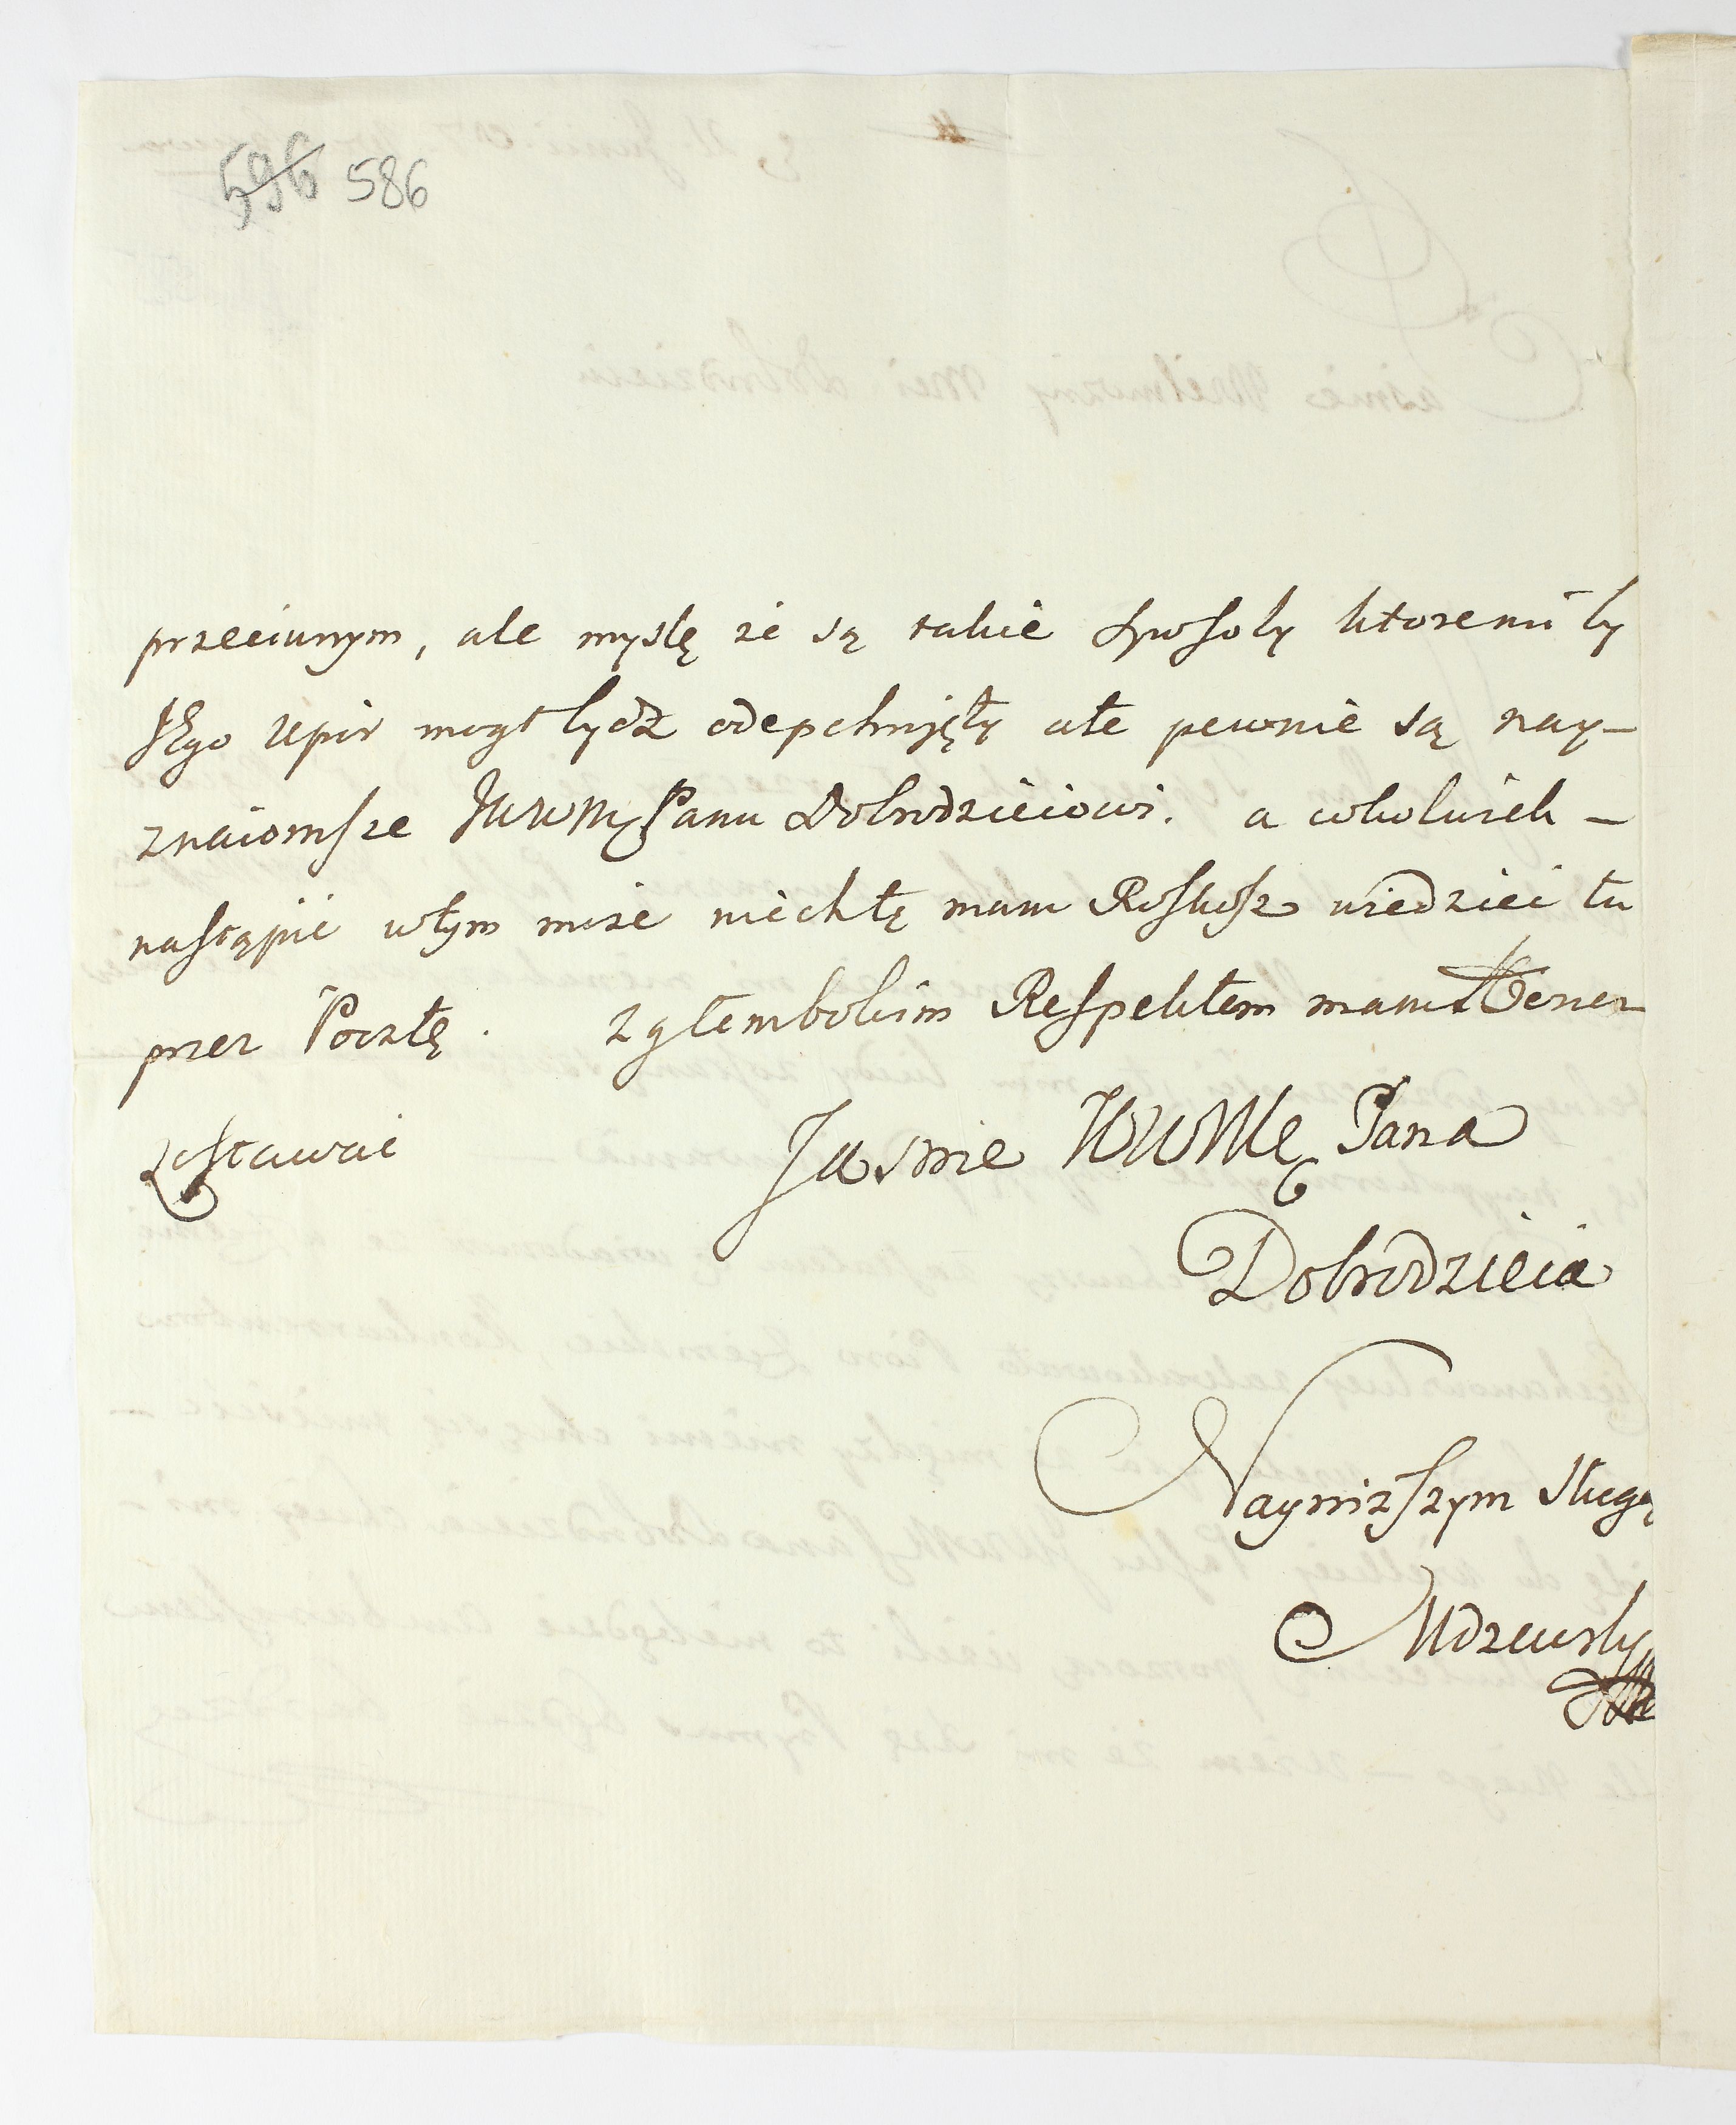 596 586
przeciwnym, ale myslę ze są takie sposoby ktoremi by
JEgo upor mogł bydz odepchnięty ale pewnie są nay-
znaiomsze JWWM Panu Dobrodzieiowi. a cokolwiek -
nastąpić wtym moze niechże mam Roskosz wiedzieć tu
przez Pocztę. z głembokim Respektem mam Honor
zostawać Jasnie WWMć Pana
Dobrodzieia
Naynizszym sługą